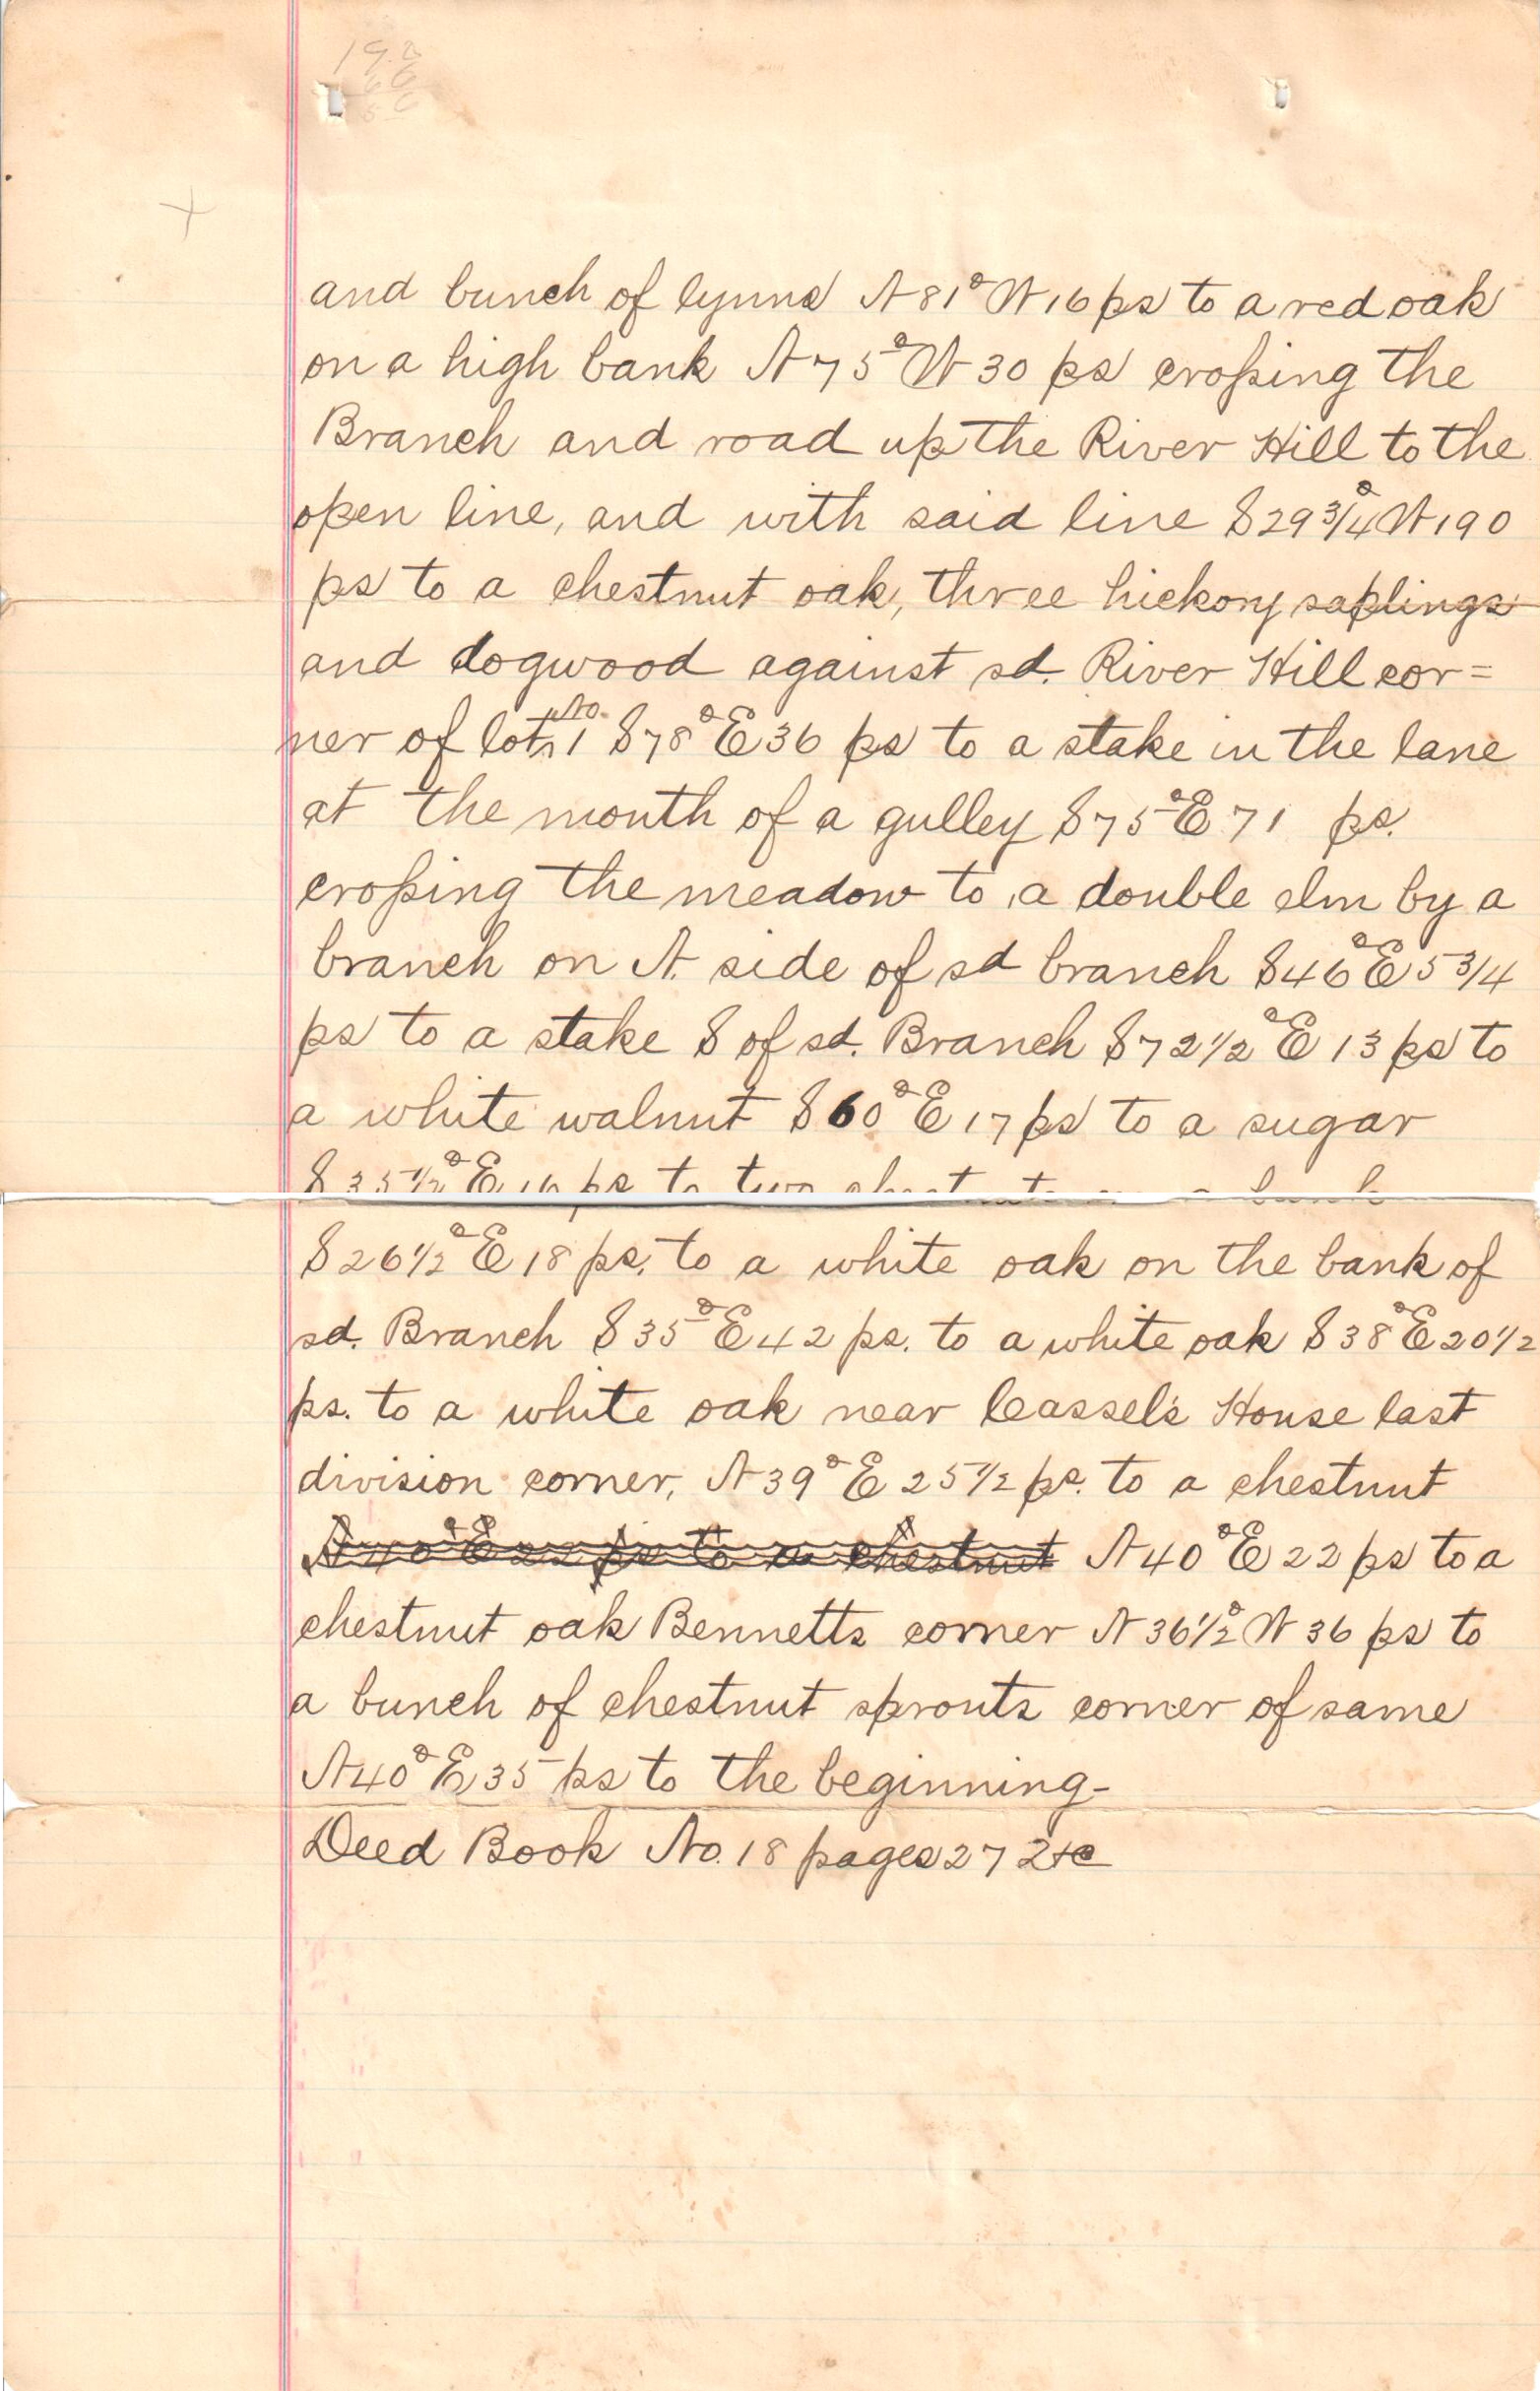 192
66
and bunch of lynns N 81° W 16 ps to a red oak
on a high bank N 75° W 30 ps croſsing the
Branch and road up the River Hill to the
open line, and with said line S 29 3/4° W 190
ps to a chestnut oak, three hickory saplings
and dogwood against sd. River Hill cor=
ner of lot No. 1 S 78° E 36 ps to a stake in the lane
at the mouth of a gulley S 75° E 71 ps.
croſsing the meadow to a double elm by a
branch on N. side of sd branch S 46° E 5 3/4
ps to a stake S of sd. Branch S 72 1/2° E 13 ps to
a white walnut S 60° E 17 ps to a sugar
S 35 1/2° E 16 ps to two chestnuts on a bank
S 26 1/2° E 18 ps. to a white oak on the bank of
sd. Branch S 35° E 42 ps. to a white oak S 38° E 20 1/2
ps. to a white oak near Cassel's House last
division corner, N 39° E 25 1/2 ps. to a chestnut
N 40° E 22 ps to a chestnut N 40° E 22 ps to a
chestnut oak Bennetts corner N 36 1/2° W 36 ps to
a bunch of chestnut sprouts corner of same
N 40° E 35 ps to the beginning-
Deed Book No. 18 pages 272 &c